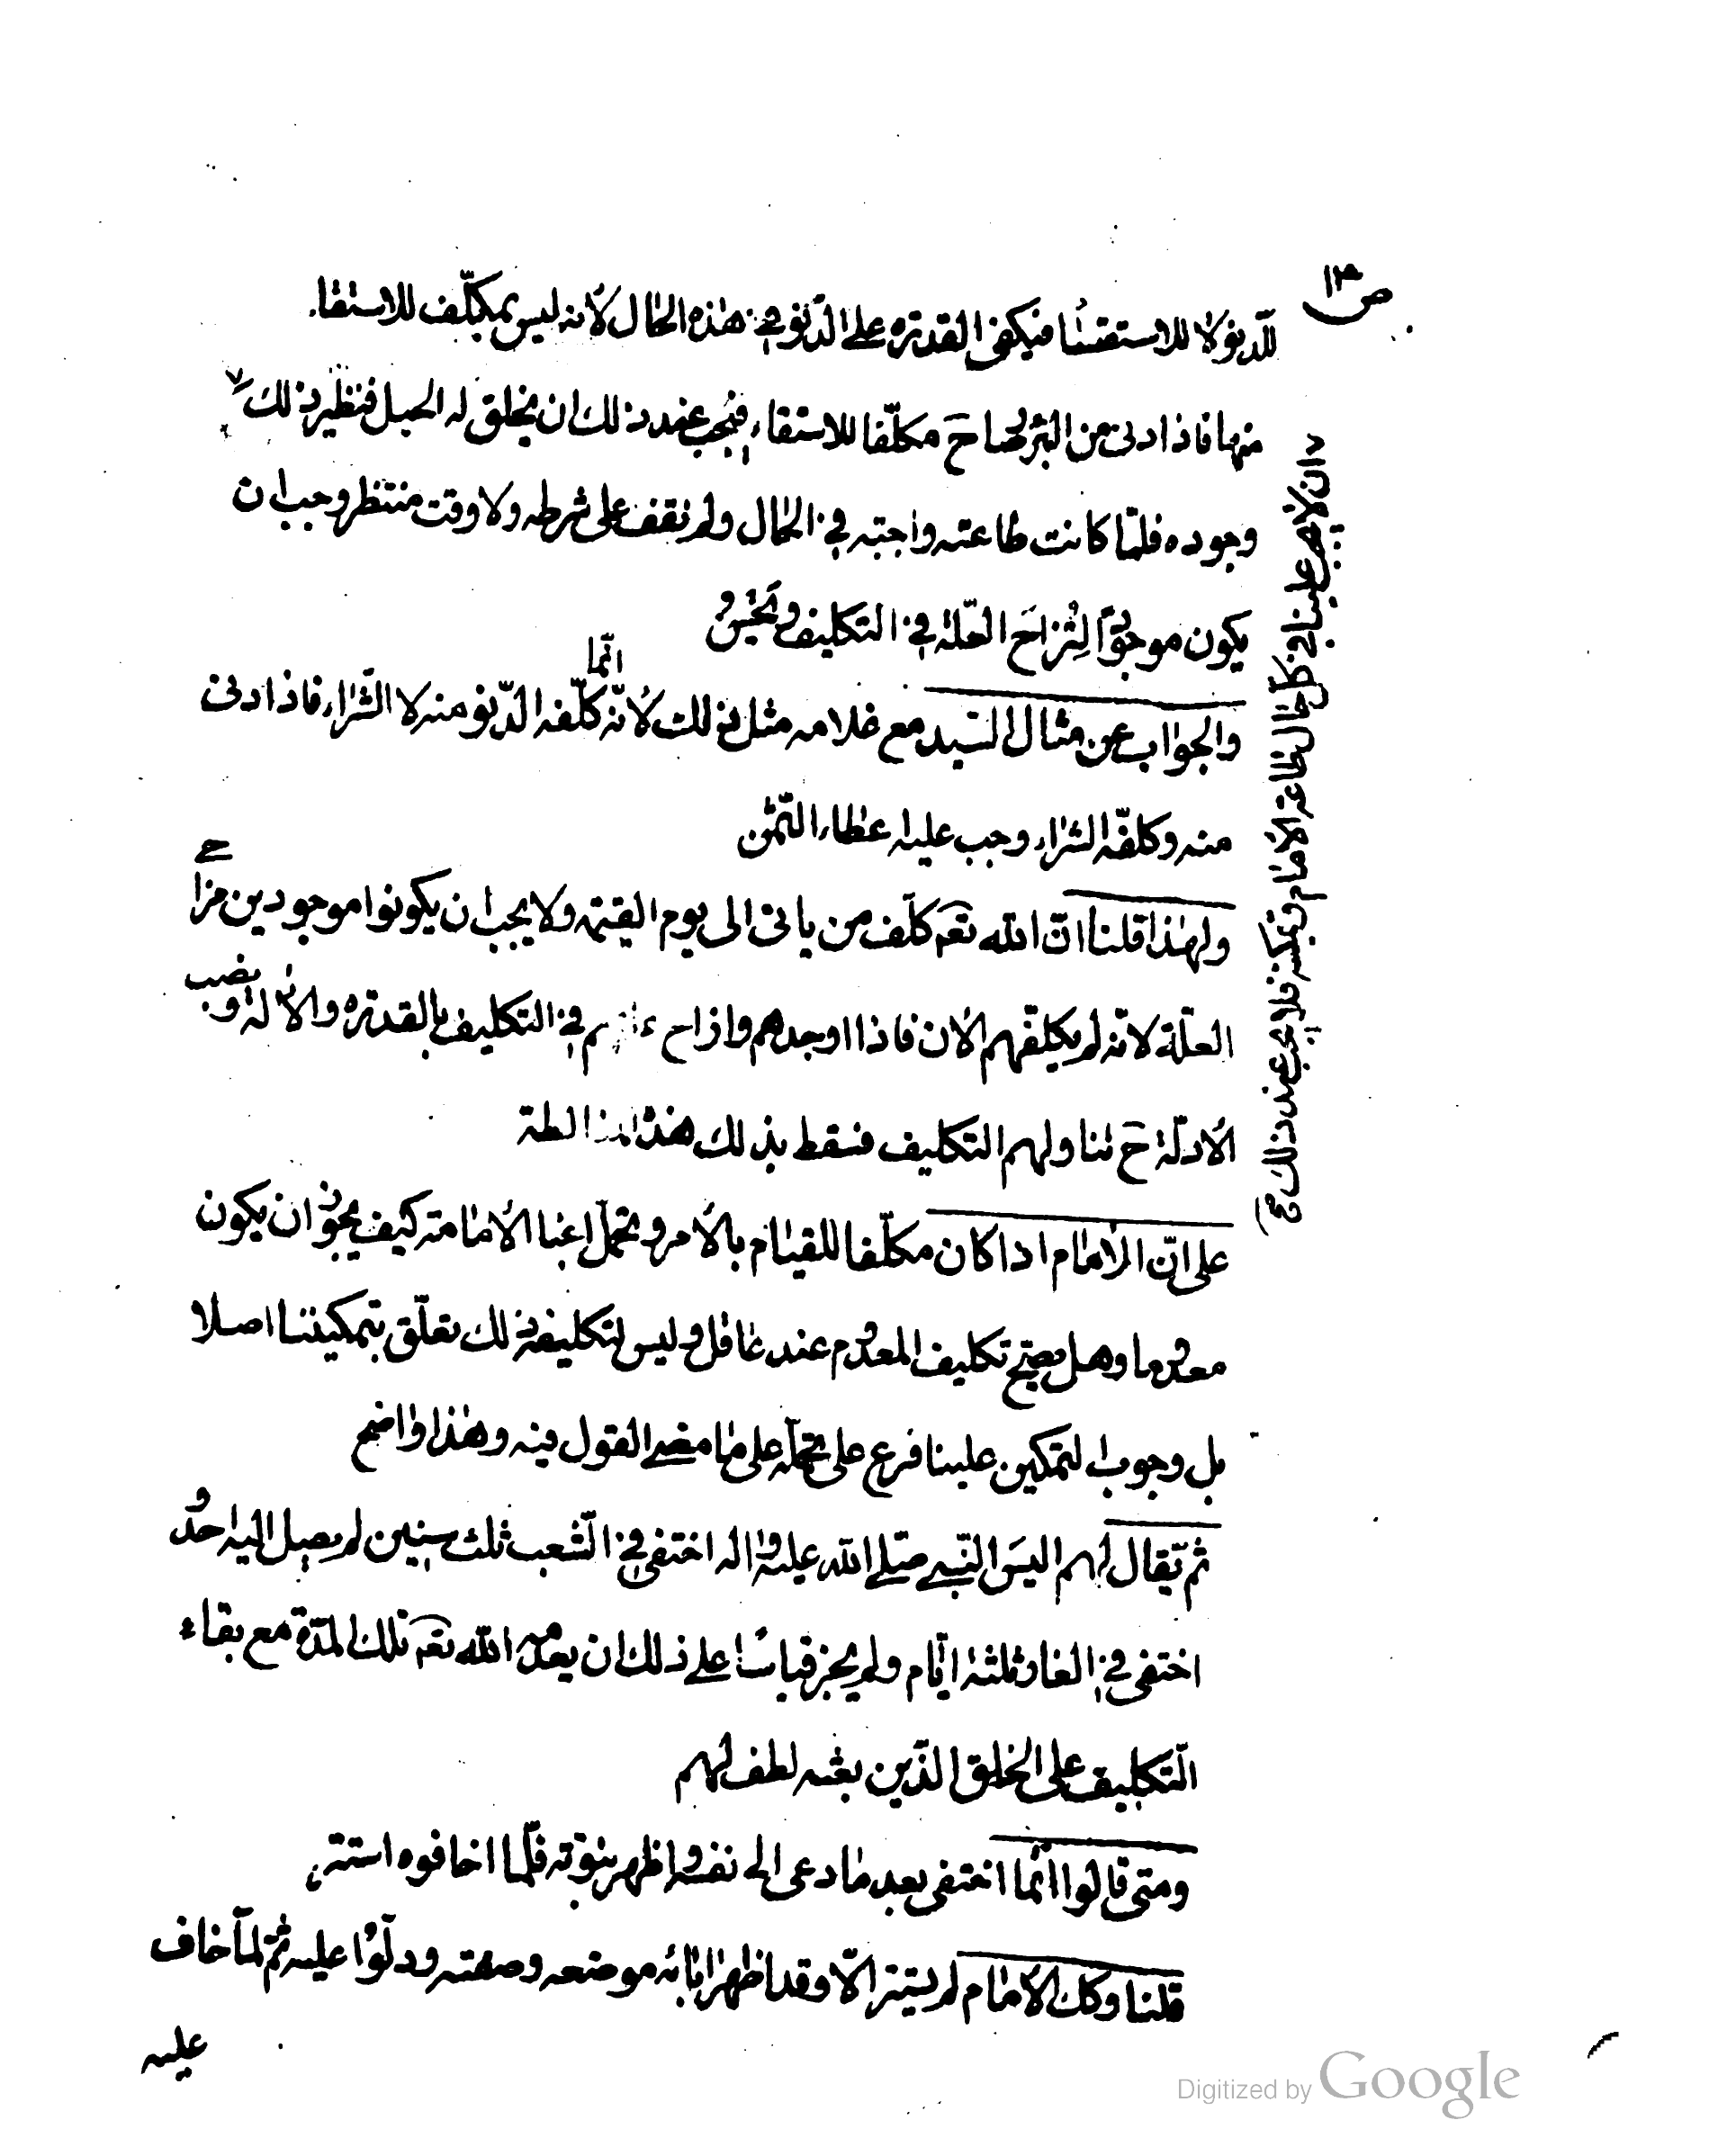 ص١٣
للدنو لا للاستقاء فيكفى القدرة على الدنو فى هذه الحال لأنه ليس بمكلّف للاستقاء
منها فاذا دنى من البئر صار ح مكلّفا للاستقاء فيجب عند ذلك ان يخلق له الحبل فنظير ذلك
ان لا يجب علينا فى كلّ حال طاعة الامام وتمكينه فلا يجب عند ذلك
وجوده فلمّا كانت طاعته واجبة فى الحال ولم نقف على شرطه ولا وقت منتظر وجب ان
يكون موجودًا لِتُزاحَ العلّة فى التكليف ويحسن
والجواب عن مثال السّيد مع غلامه مثل ذلك لأنّه انّما كلّفه الدّنو منه لا الشّراء فاذا دنى
منه وكلّفه الشراء وجب عليه اعطاء الثّمن
ولهذا قلنا انّ الله تعم كلّف من يأتى الى يوم القيمة ولا يجب ان يكونوا موجودين مزاحى
العلّة لانّه لم يكلّفهم الان فاذا اوجدهم وازاح علتهم فى التكليف بالقدرة والآلة ونصب
الأدلّة ح تناولهم التكليف فسقط بذلك هذه المغالطة
على انّ الامام اذا كان مكلّفا للقيام بالأمر وتحمّل اعباء الأمامة كيف يجوز ان يكون
معدوما وهل يصحّ تكليف المعدوم عند عاقل وليس لتكليفه ذلك تعلّق بتمكيننا اصلا
بل وجوب التمكين علينا فرع على تحمّله على ما مضى القول فيه وهذا واضح
ثم يقال لهم اليسَ النّبى صلّى الله عليه واله اختفى فى الشّعب ثلث سنين لم يصل اليه احدٌ
اختفى فى الغار ثلثة ايّام ولم يجز قياسًا على ذلك ان يعدمه الله تعم تلك المدّة مع بقاء
التّكليف على الخلق الّذين بعثه لطف لهم
ومتى قالوا انّما اختفى بعد ما دعى الى نفسه واظهر نبوّته فلّما اخافوه استتر
قلنا وكك الامام لم يستتر الّا وقد اظهر ابائه موضعه وصفته ودلّوا عليه ثمّ لمّا خاف
عليه
Digitized by Google